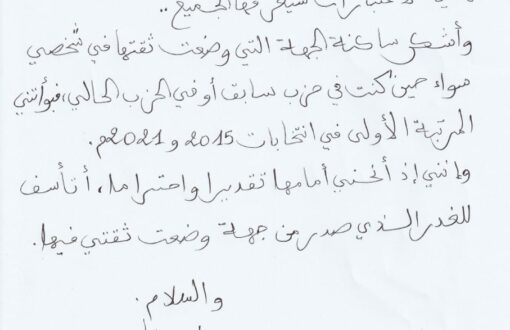 لاعتبارات سيقف فيها الجميع..
وأشكر ساكنة الجهة التي وضعت ثقتها في شخصي
سواء حين كنت في حزب سابق أو في الحزب الحالي، فبوأتني
المرتبة الأولى في انتخابات 2015 و 2021م.
وإنني إذ أنحني أمامها تقديرا واحتراما، أتأسف
للغدر الذي صدر من جهة وضعت ثقتي فيها.
والسلام.